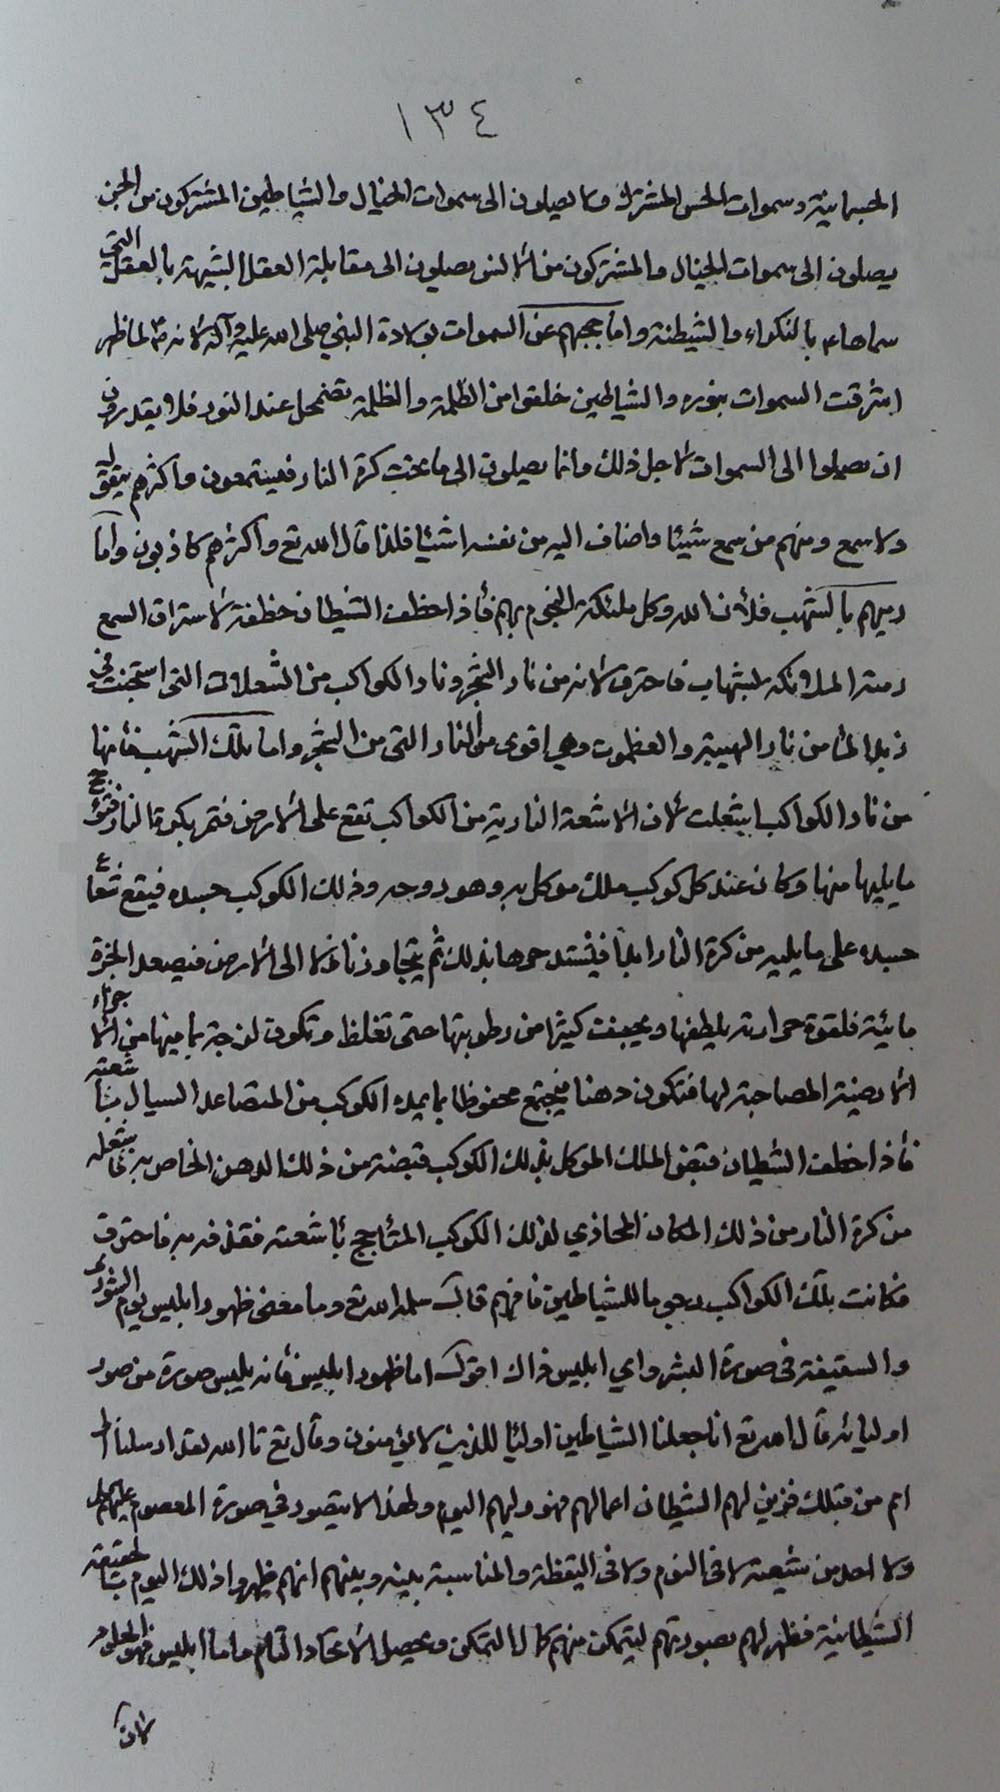 ١٣٤
الجسمانية وسموات الحس المشترك وما يصلون الى سموات الخيال والشياطين المشتركون من الجن
يصلون الى سموات الخيال والمشتركون من الانس يصلون الى مقابلة العقل الشبيهة بالعقل التى
سماها ع بالنكراء والشيطنة واما حجبهم عن السموات بولادة النبي صلى الله عليه وآله لانه ص لما ظهر
اشرقت السموات بنوره والشياطين خلقوا من الظلمة والظلمة تضمحل عند النور فلا يقدرون
ان يصلوا الى السموات لاجل ذلك وانما يصلون الى ما تحت كرة النار فيستمعون واكثرهم يتقول
ولا سمع ومنهم من سمع شيئا واضاف اليه من نفسه اشيئا فلذا قال الله تع واكثرهم كاذبون واما
رميهم بالشهب فلأن الله وكل ملئكة النجوم بهم فأذا خطف الشيطان خطفة لاستراق السمع
رمته الملائكة بشهاب فاحترق لانه من نار الشجر ونار الكواكب من الشعلات التى استجنت في
زبد الماء من نار الهيبة والعظموت وهي اقوى من النار التى من الشجر واما تلك الشهب فأنها
من نار الكواكب اشتعلت لان الاشعة النارية من الكواكب تقع على الارض فتمر بكرة النار فتؤجج
ما يليها منها وكان عند كل كوكب ملك موكل به وهو روحه وذلك الكوكب جسده فيقع شعاع
جسده على ما يليه من كرة النار ابدا فيشتد حرها بذلك ثم يتجاوز نازلا الى الارض فيصعد ابخرة
مائية فلقوة حرارته يلطفها ويجفف كثيرا من رطوبتها حتى تغلظ وتكون لزجة بما فيها من الاجزاء
الارضية المصاحبة لها فتكون دهنا فيجتمع محفوظا بما يمده الكوكب من المتصاعد السيال باشعته
فأذا خطف الشيطان قبض الملك الموكل بذلك الكوكب قبضة من ذلك الدهن الخاص به بما يشعله
من كرة النار من ذلك المكان المحاذي لذلك الكوكب المتأجج بأشعته فقذفه به فاحترق
فكانت تلك الكواكب رجوما للشياطين فافهم قال سلمه الله تع وما معنى ظهور ابليس يوم الشورى
والسقيفة في صورة البشر واي ابليس ذاك اقول اما ظهور ابليس فأنه يلبس صورة من صور
اوليائه قال الله تع انا جعلنا الشياطين اولياء للذين لا يؤمنون وقال تع تا الله لقد ارسلنا الى
امم من قبلك فزين لهم الشيطان اعمالهم فهو وليهم اليوم ولهذا لا يتصور في صورة المعصوم عليه السلام
ولا احد من شيعته لا في النوم ولا في اليقظة والمناسبة بينه وبينهم انهم ظهروا ذلك اليوم بالحقيقة
الشيطانية فظهر لهم بصورتهم ليتمكن منهم كمال التمكن ويحصل الاتحاد التام واما ابليس فهو المعلوم
لان